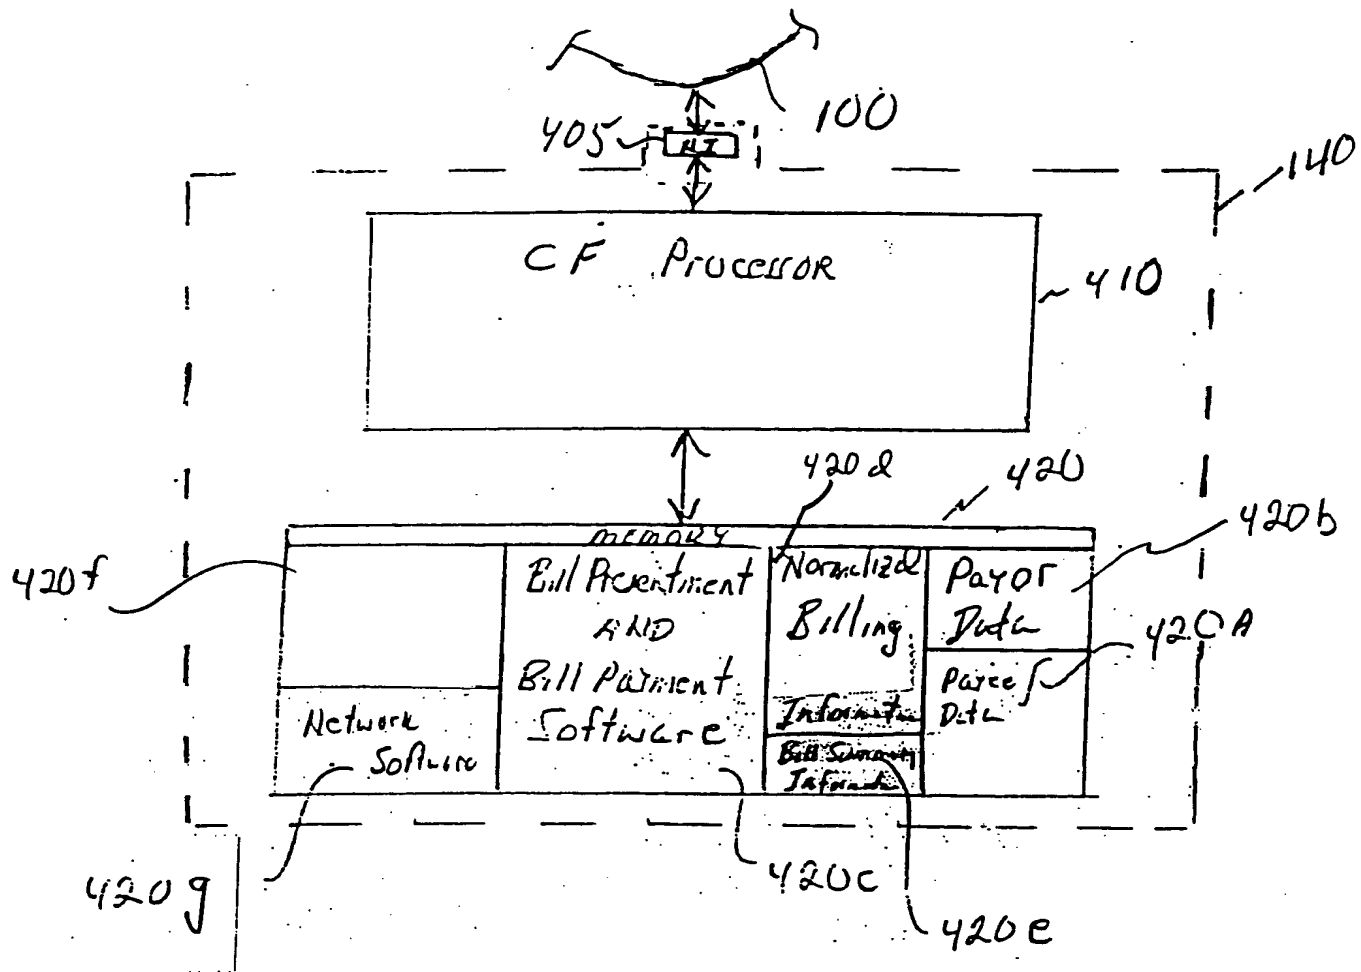 100
405
140
CF Processor
410
420d
420
420b
memory
420f
Bill Presentment
AND
Bill Paiment
Software
Normalized
Billing
Informatn
Payor
Data
420A
Payee
Data
Network
Software
Bill Summary
Informatn
420g
420c
420e